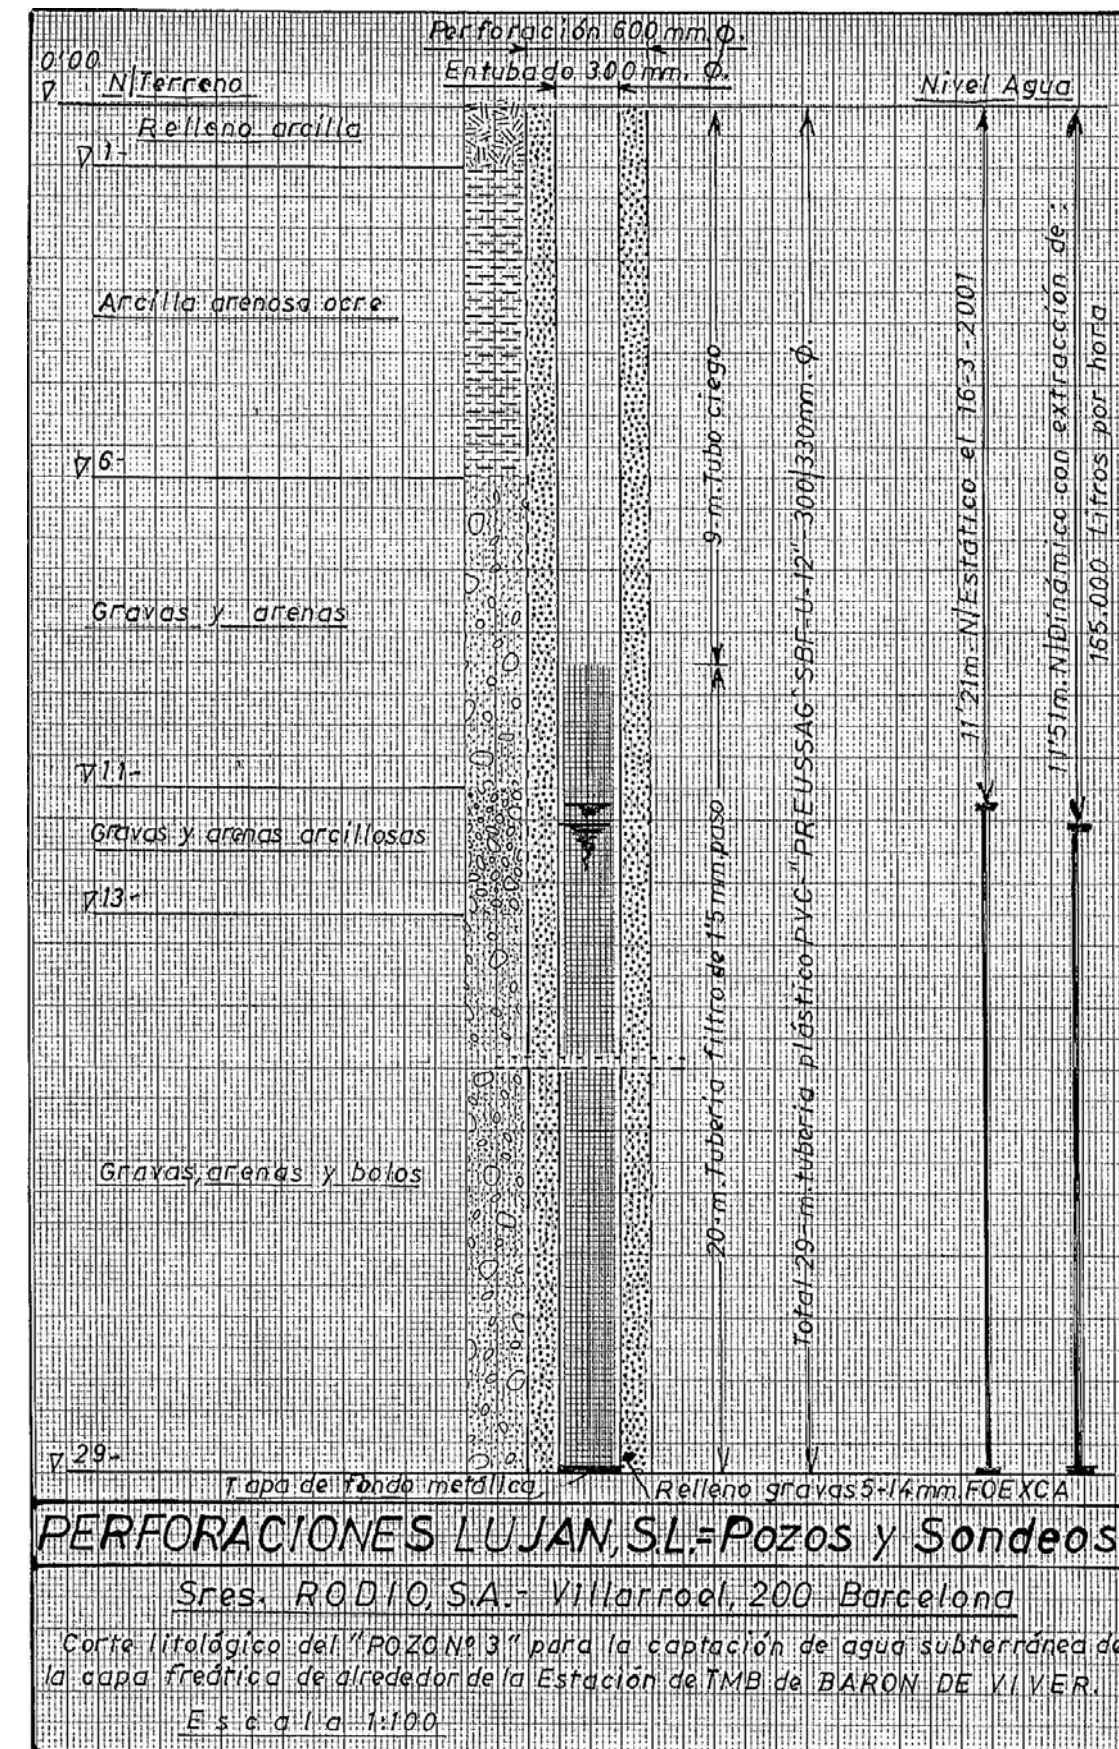 Perforación 600 mm. Φ.
Entubado 300 mm. Φ.
0'00
N/Terreno
Nivel Agua
Relleno arcilla
1-
Arcilla arenosa ocre
6-
Gravas y arenas
11-
Gravas y arenas arcillosas
13-
Gravas, arenas y bolos
29-
9-m. Tubo ciego
20-m. Tubería filtro de 1'5 mm. paso
Total 29-m. tubería plástico PVC-"PREUSSAG" SBF-U-12"-300/330mm. Φ.
11'21m- N/Estático el 16-3-2001
11'51m. N/Dinámico con extracción de:
165.000 Litros por hora
Tapa de fondo metálica,
Relleno gravas 5-14 mm. FOEXCA
PERFORACIONES LUJAN, S.L.=Pozos y Sondeos
Sres. RODIO, S.A.- Villarroel, 200 Barcelona
Corte litológico del "POZO Nº 3" para la captación de agua subterránea de
la capa freática de alrededor de la Estación de TMB de BARON DE VIVER.
Escala 1:100